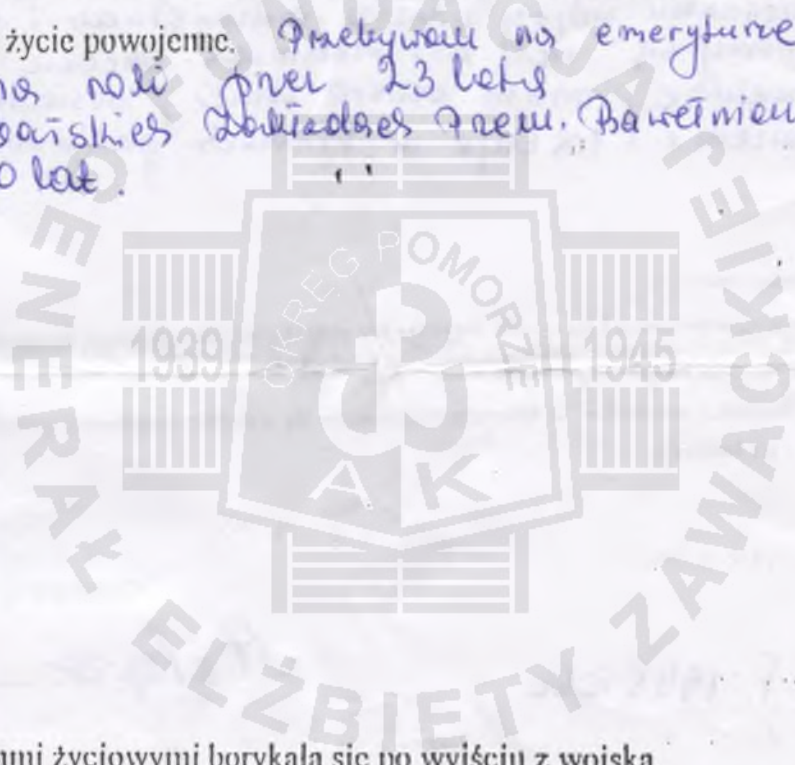 życie powojenne. Przebywam na emeryturze
na roli przez 23 lata
Zakładach Przem. Bawełnian
0 lat.
FUNDACJA
GENERAŁ ELŻBIETY ZAWACKIEJ
OKRĘG POMORZE
1939 1945
AK
życiowymi borykała się po wyjściu z wojska